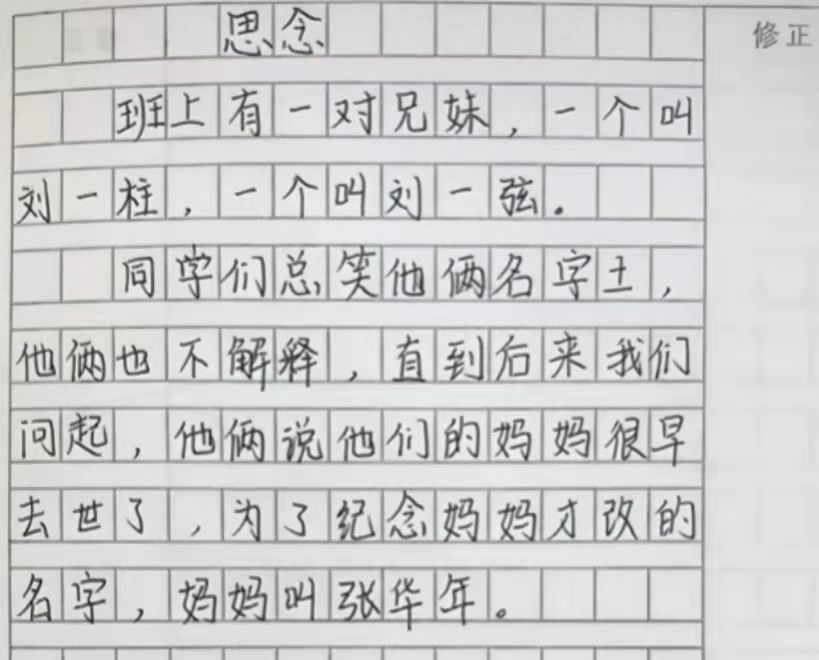 思念
修正
班上有一对兄妹，一个叫
刘一柱，一个叫刘一弦。
同学们总笑他俩名字土，
他俩也不解释，直到后来我们
问起，他俩说他们的妈妈很早
去世了，为了纪念妈妈才改的
名字，妈妈叫张华年。